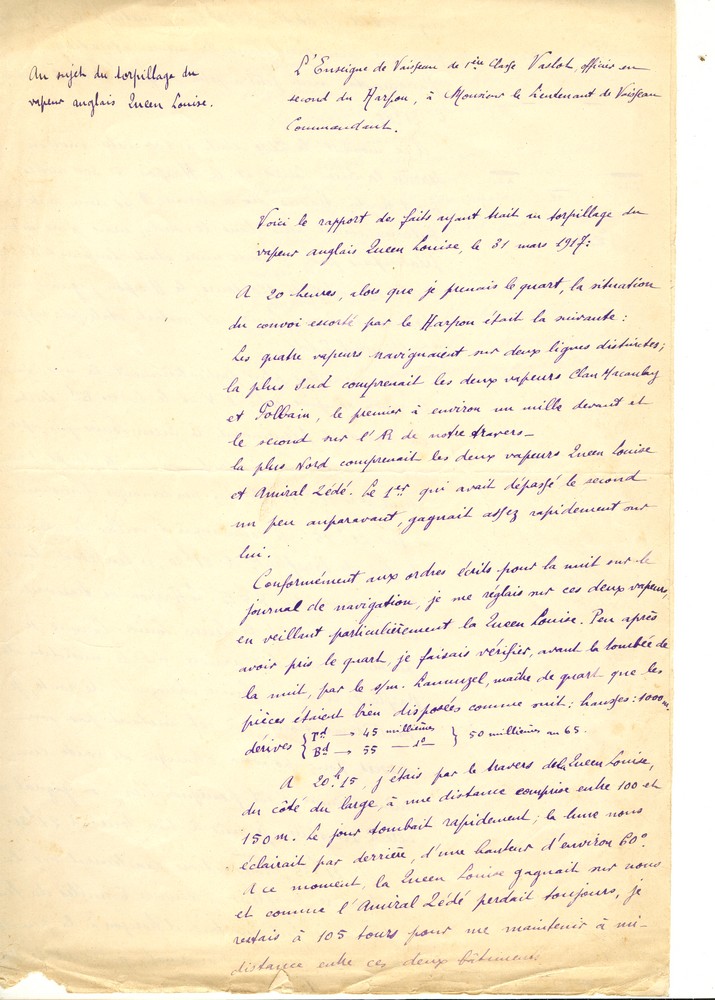 Au sujet du torpillage du
vapeur anglais Queen Louise.
L'Enseigne de Vaisseau de 1ère Classe Vaslot, officier en
second du Harpon, à Monsieur le Lieutenant de Vaisseau
Commandant.
Voici le rapport des faits ayant trait au torpillage du
vapeur anglais Queen Louise, le 31 mars 1917:
A 20 heures, alors que je prenais le quart, la situation
du convoi escorté par le Harpon était la suivante :
Les quatre vapeurs naviguaient sur deux lignes distinctes;
la plus Sud comprenait les deux vapeurs Clan Macaulay
et Polbain, le premier à environ un mille devant et
le second sur l'AR de notre travers_
la plus Nord comprenait les deux vapeurs Queen Louise
et Amiral Zédé. Le 1er qui avait dépassé le second
un peu auparavant, gagnait assez rapidement sur
lui.
Conformément aux ordres écrits pour la nuit sur le
journal de navigation, je me réglais sur ces deux vapeurs,
en veillant particulièrement la Queen Louise. Peu après
avoir pris le quart, je faisais vérifier, avant la tombée de
la nuit, par le s/m. maître de quart que les
pièces étaient bien disposées comme suit : hausses : 1000 m.
dérives { Td → 45 millièmes
Bd → 55 — do } 50 millièmes au 65.
A 20h.15, j'étais par le travers de la Queen Louise,
du côté du large, à une distance comprise entre 100 et
150m. Le jour tombait rapidement; la lune nous
éclairait par derrière, d'une hauteur d'environ 60°.
A ce moment, la Queen Louise gagnait sur nous
et comme l'Amiral Zédé perdait toujours, je
restais à 105 tours pour me maintenir à mi-
distance entre ces deux bâtiments.